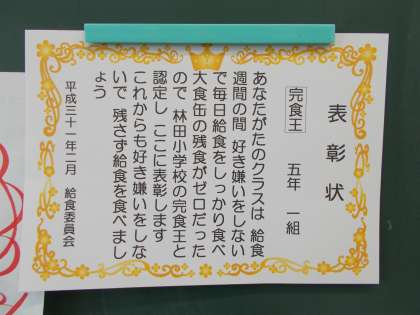 表彰状
完食王 五年 一組
あなたがたのクラスは 給食
週間の間 好き嫌いをしない
で毎日給食をしっかり食べ
大食缶の残食がゼロだった
ので 林田小学校の完食王と
認定し ここに表彰します
これからも好き嫌いをしな
いで 残さず給食を食べまし
ょう
平成三十一年二月 給食委員会